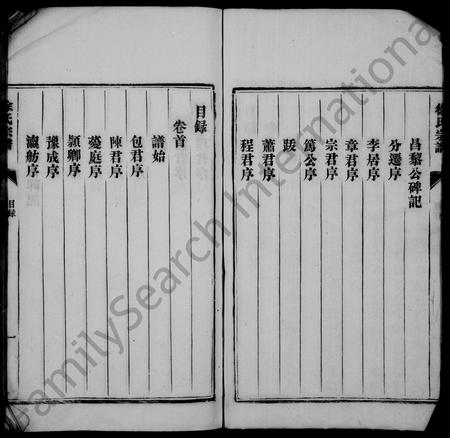 徐氏宗譜
昌黎公碑記
分遷序
李居序
章君序
宗君序
篤公序
跋
蕭君序
程君序
目錄
卷首
譜始
包君序
陳君序
庭序
穎卿序
豫成序
瀛舫序
徐氏宗譜
目錄
一
FamilySearch International